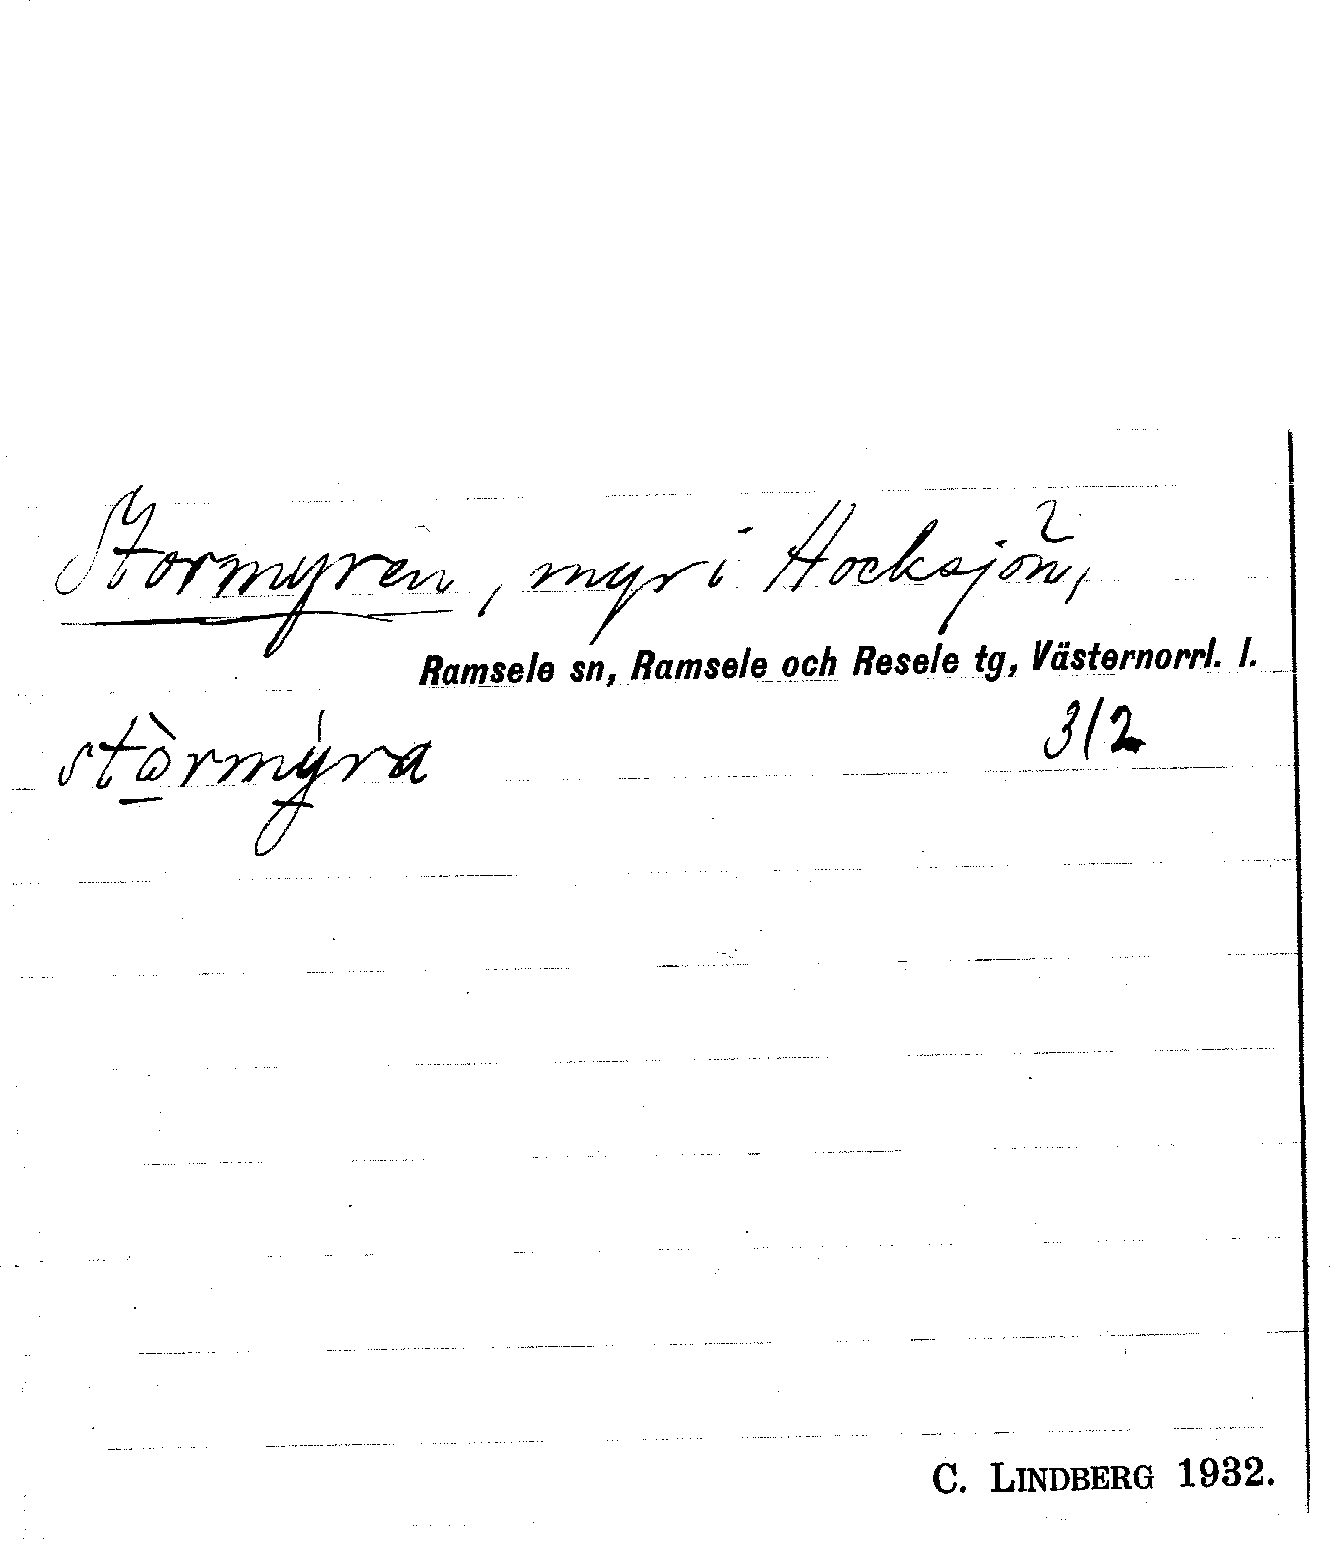 Stormyren, myr i Hocksjön,
Ramsele sn, Ramsele och Resele tg, Västernorrl. l.
stò̱rmýra 3/2
C. LINDBERG 1932.